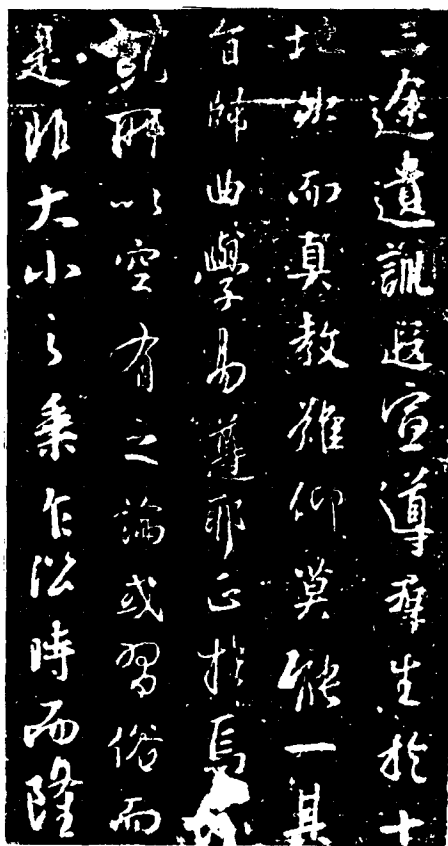 三途遺訓遐宣導羣生於十
地然而真教難仰莫能一其
旨歸曲學易遵耶正於焉紛
糺所以空有之論或習俗而
是非大小之乘乍沿時而隆